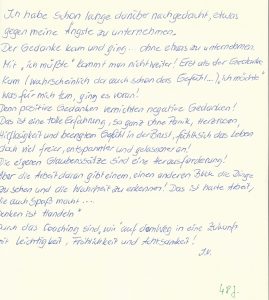 Ich habe schon lange darüber nachgedacht, etwas
gegen meine Ängste zu unternehmen.
Der Gedanke kam und ging ... ohne etwas zu unternehmen.
Mit "ich müßte" kommt man nicht weiter! Erst als der Gedanke
kam (wahrscheinlich da auch schon das Gefühl...) "ich möchte"
was für mich tun, ging es voran!
Denn positive Gedanken vernichten negative Gedanken!
Das ist eine tolle Erfahrung, so ganz ohne Panik, Herzrasen,
und beengten Gefühl in der Brust, fühlt sich das Leben
doch viel freier, entspannter und gelassener an!
Die eigenen Glaubenssätze sind eine Herausforderung!
Aber die Arbeit daran gibt einem, einen anderen Blick die Dinge
zu sehen und die Wahrheit zu erkennen! Das ist harte Arbeit,
die auch Spaß macht...
Denken ist Handeln"
Durch das Coaching sind "wir" auf dem Weg in eine Zukunft
mit Leichtigkeit, Fröhlichkeit und Achtsamkeit!
48 J.